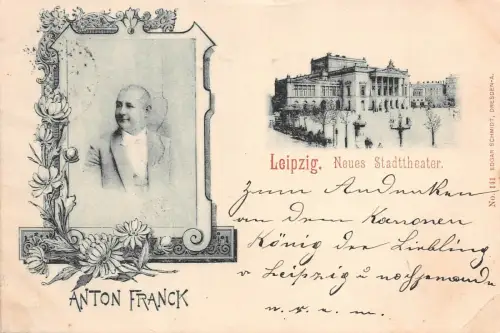 ANTON FRANCK
Leipzig. Neues Stadttheater.
No. 141 EDGAR SCHMIDT, DRESDEN-A.
Zum Andenken
an dem Kanonen
König der Liebling
v Leipzig u
u. s. w.